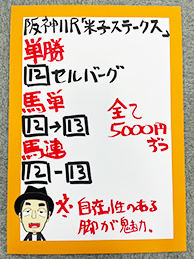 阪神11R「米子ステークス」
単勝
12 セルバーグ
馬単
12→13
馬連
12-13
全て
5000円
ずつ
自在性のある
脚が魅力。